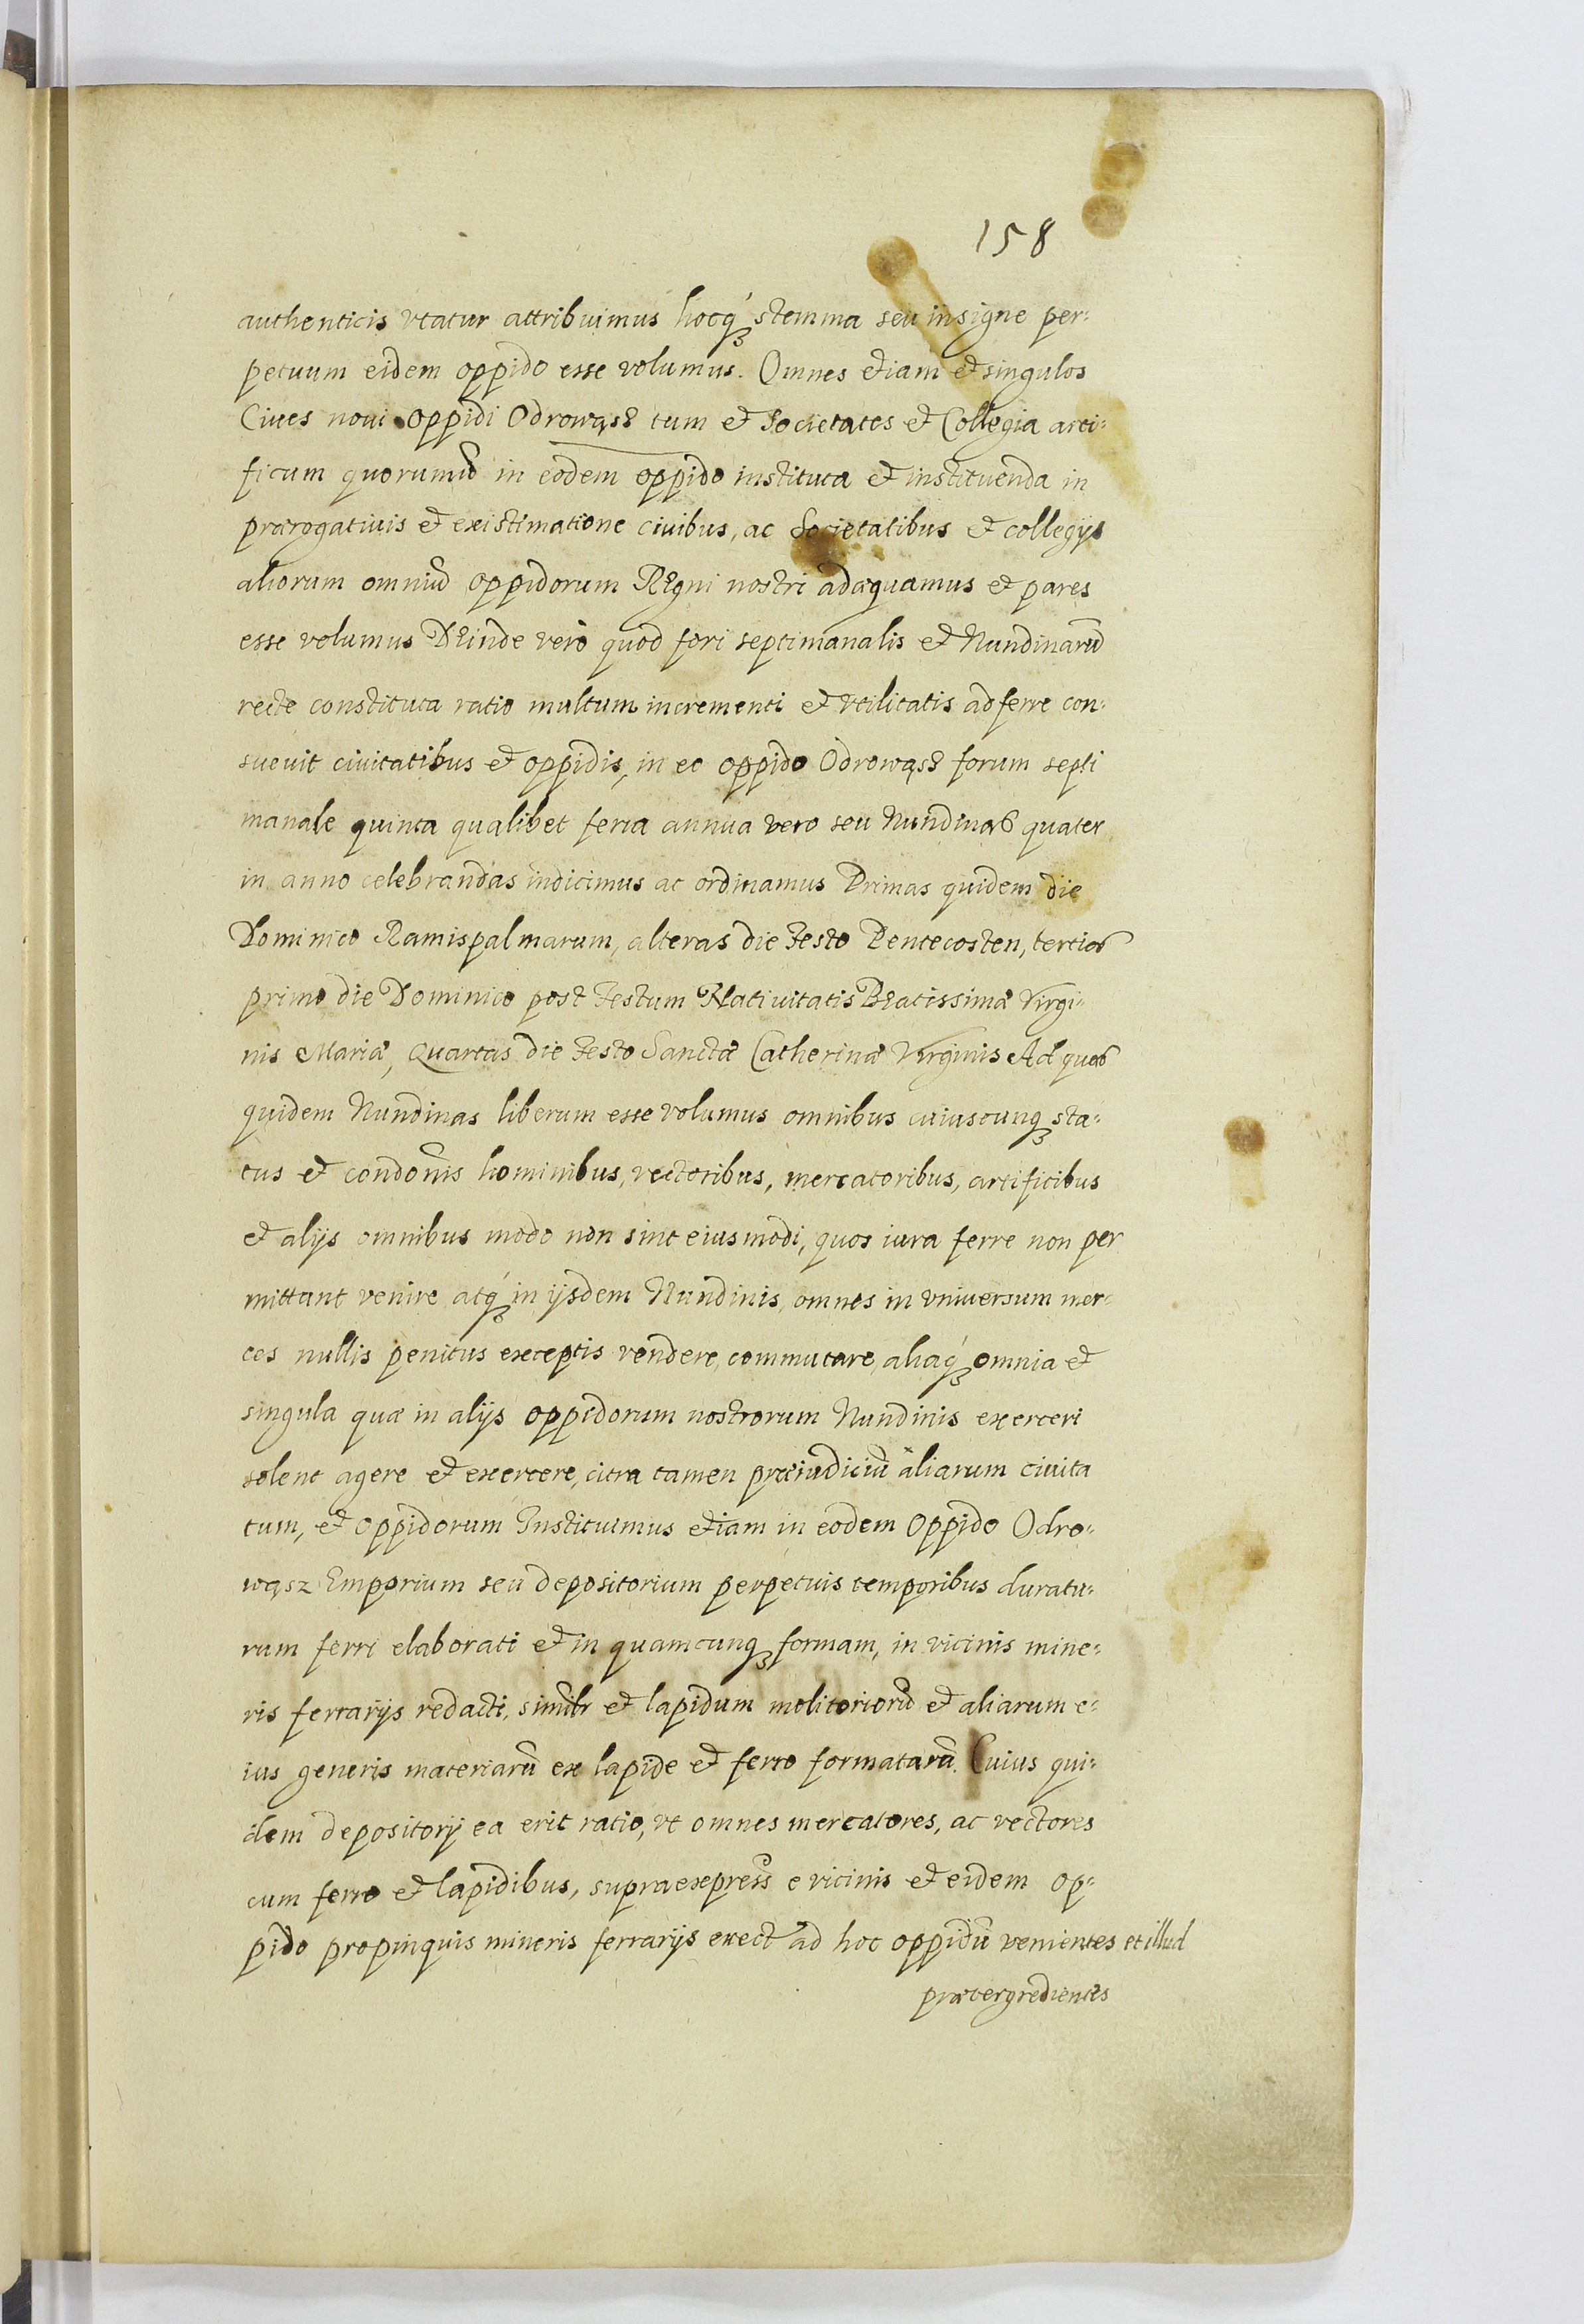 158
authenticis vtatur attribuimus hocq́ stemma seu insigne per-
petuum eidem oppido esse volumus. Omnes etiam et singulos
Ciues noui Oppidi Odrowąsz tum et Societates et Collegia arti-
ficum quorumuis in eodem oppido instituta et instituenda in
prærogatiuis et existimatione ciuibus, ac Societatibus et collegijs
aliorum omniũ Oppidorum Regni nostri adæquamus et pares
esse volumus Deinde verò quod fori septimanalis et Nundinarũ
recte constituta ratio multum incrementi et vtilitatis adferre con-
sueuit ciuitatibus et oppidis, in eo oppido Odrowąsz forum septi
manale quinta qualibet feria annua vero seu Nundinas quater
in anno celebrandas indicimus ac ordinamus Primas quidem die
Dominico Ramispalmarum, alteras die Festo Pentecosten, tertias
primo die Dominico post Festum Natiuitatis Beatissimæ Virgi-
nis Mariæ, Quartas die Festo Sanctæ Catherinæ Virginis Ad quas
quidem Nundinas liberum esse volumus omnibus cuiuscunq sta-
tus et condõnis hominibus, vectoribus, mercatoribus, artificibus
et alijs omnibus modo non sint eiusmodi, quos iura ferre non per
mittant venire atq́ in ijsdem Nundinis, omnes in vniuersum mer-
ces nullis penitus exceptis vendere, commutare, aliaq́ omnia et
singula quæ in alijs oppidorum nostrorum Nundinis exerceri
solent agere et exercere, citra tamen præiudiciũ aliarum ciuita
tum, et Oppidorum Instituimus etiam in eodem Oppido Odro-
wąsz Emporium seu depositorium perpetuis temporibus duratu-
rum ferri elaborati et in quamcunq formam, in vicinis mine-
ris ferrarijs redacti, similr et lapidum molitoriorũ et aliarum e-
ius generis materiarũ ex lapide et ferro formatarũ. Cuius qui-
dem depositorij ea erit ratio, vt omnes mercatores, ac vectores
cum ferro et lapidibus, supraexpress e vicinis et eidem op-
pido propinquis mineris ferrarijs exect ad hoc oppidũ venientes et illud
prætergredientes